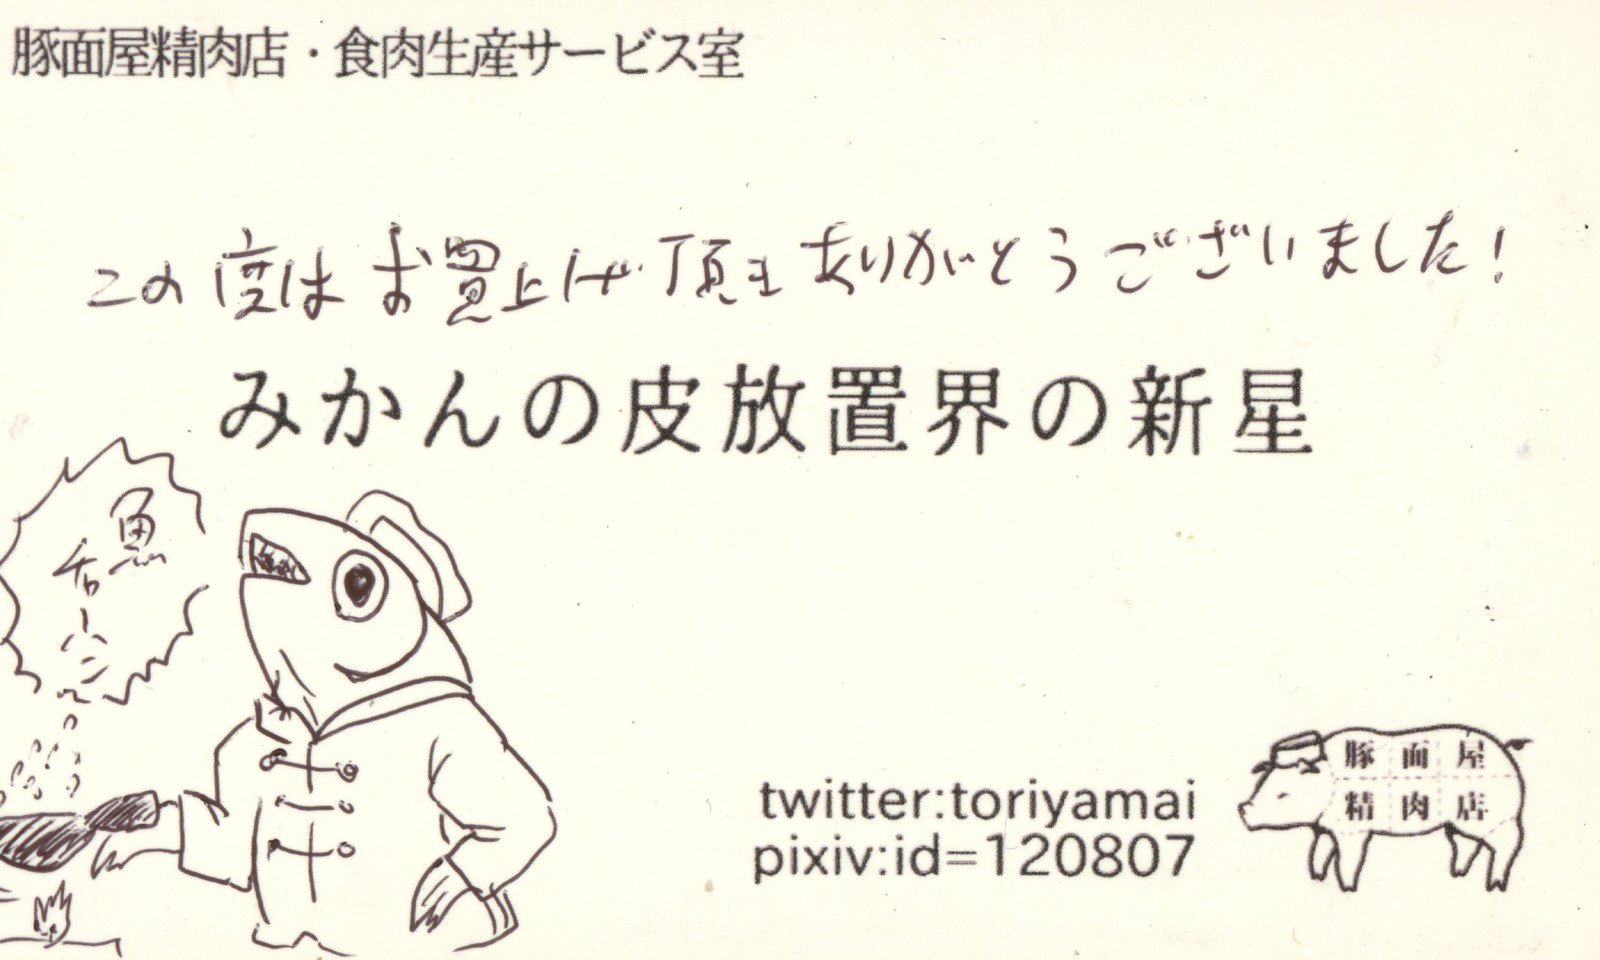 豚面屋精肉店・食肉生産サービス室
この度はお買上げ頂きありがとうございました!
みかんの皮放置界の新星
魚
twitter:toriyamai
pixiv:id=120807
豚面屋
精肉店